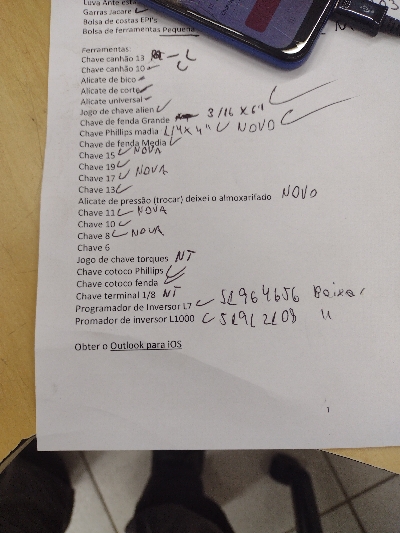 Luva Ante esta
Garras Jacare ✓
Bolsa de costas EPI's
Bolsa de ferramentas Pequena
Ferramentas
Chave canhão 13
Chave canhão 10
Alicate de bico
Alicate de corte
Alicate universal
Jogo de chave alien ✓
Chave de fenda Grande 3/16 x 6"
Chave Phillips madia 1/4 x 4" ✓ NOVO
Chave de fenda Media ✓
Chave 15 ✓ NOVA
Chave 19 ✓
Chave 17 ✓ NOVA
Chave 13 ✓
Alicate de pressão (trocar) deixei o almoxarifado NOVO
Chave 11 ✓ NOVA
Chave 10 ✓
Chave 8 ✓ NOVA
Chave 6
Jogo de chave torques NT
Chave cotoco Phillips ✓
Chave cotoco fenda ✓
Chave terminal 1/8 NT
Programador de Inversor L7 ✓ Baixar
Promador de inversor L1000 ✓ "
Obter o Outlook para iOS
1